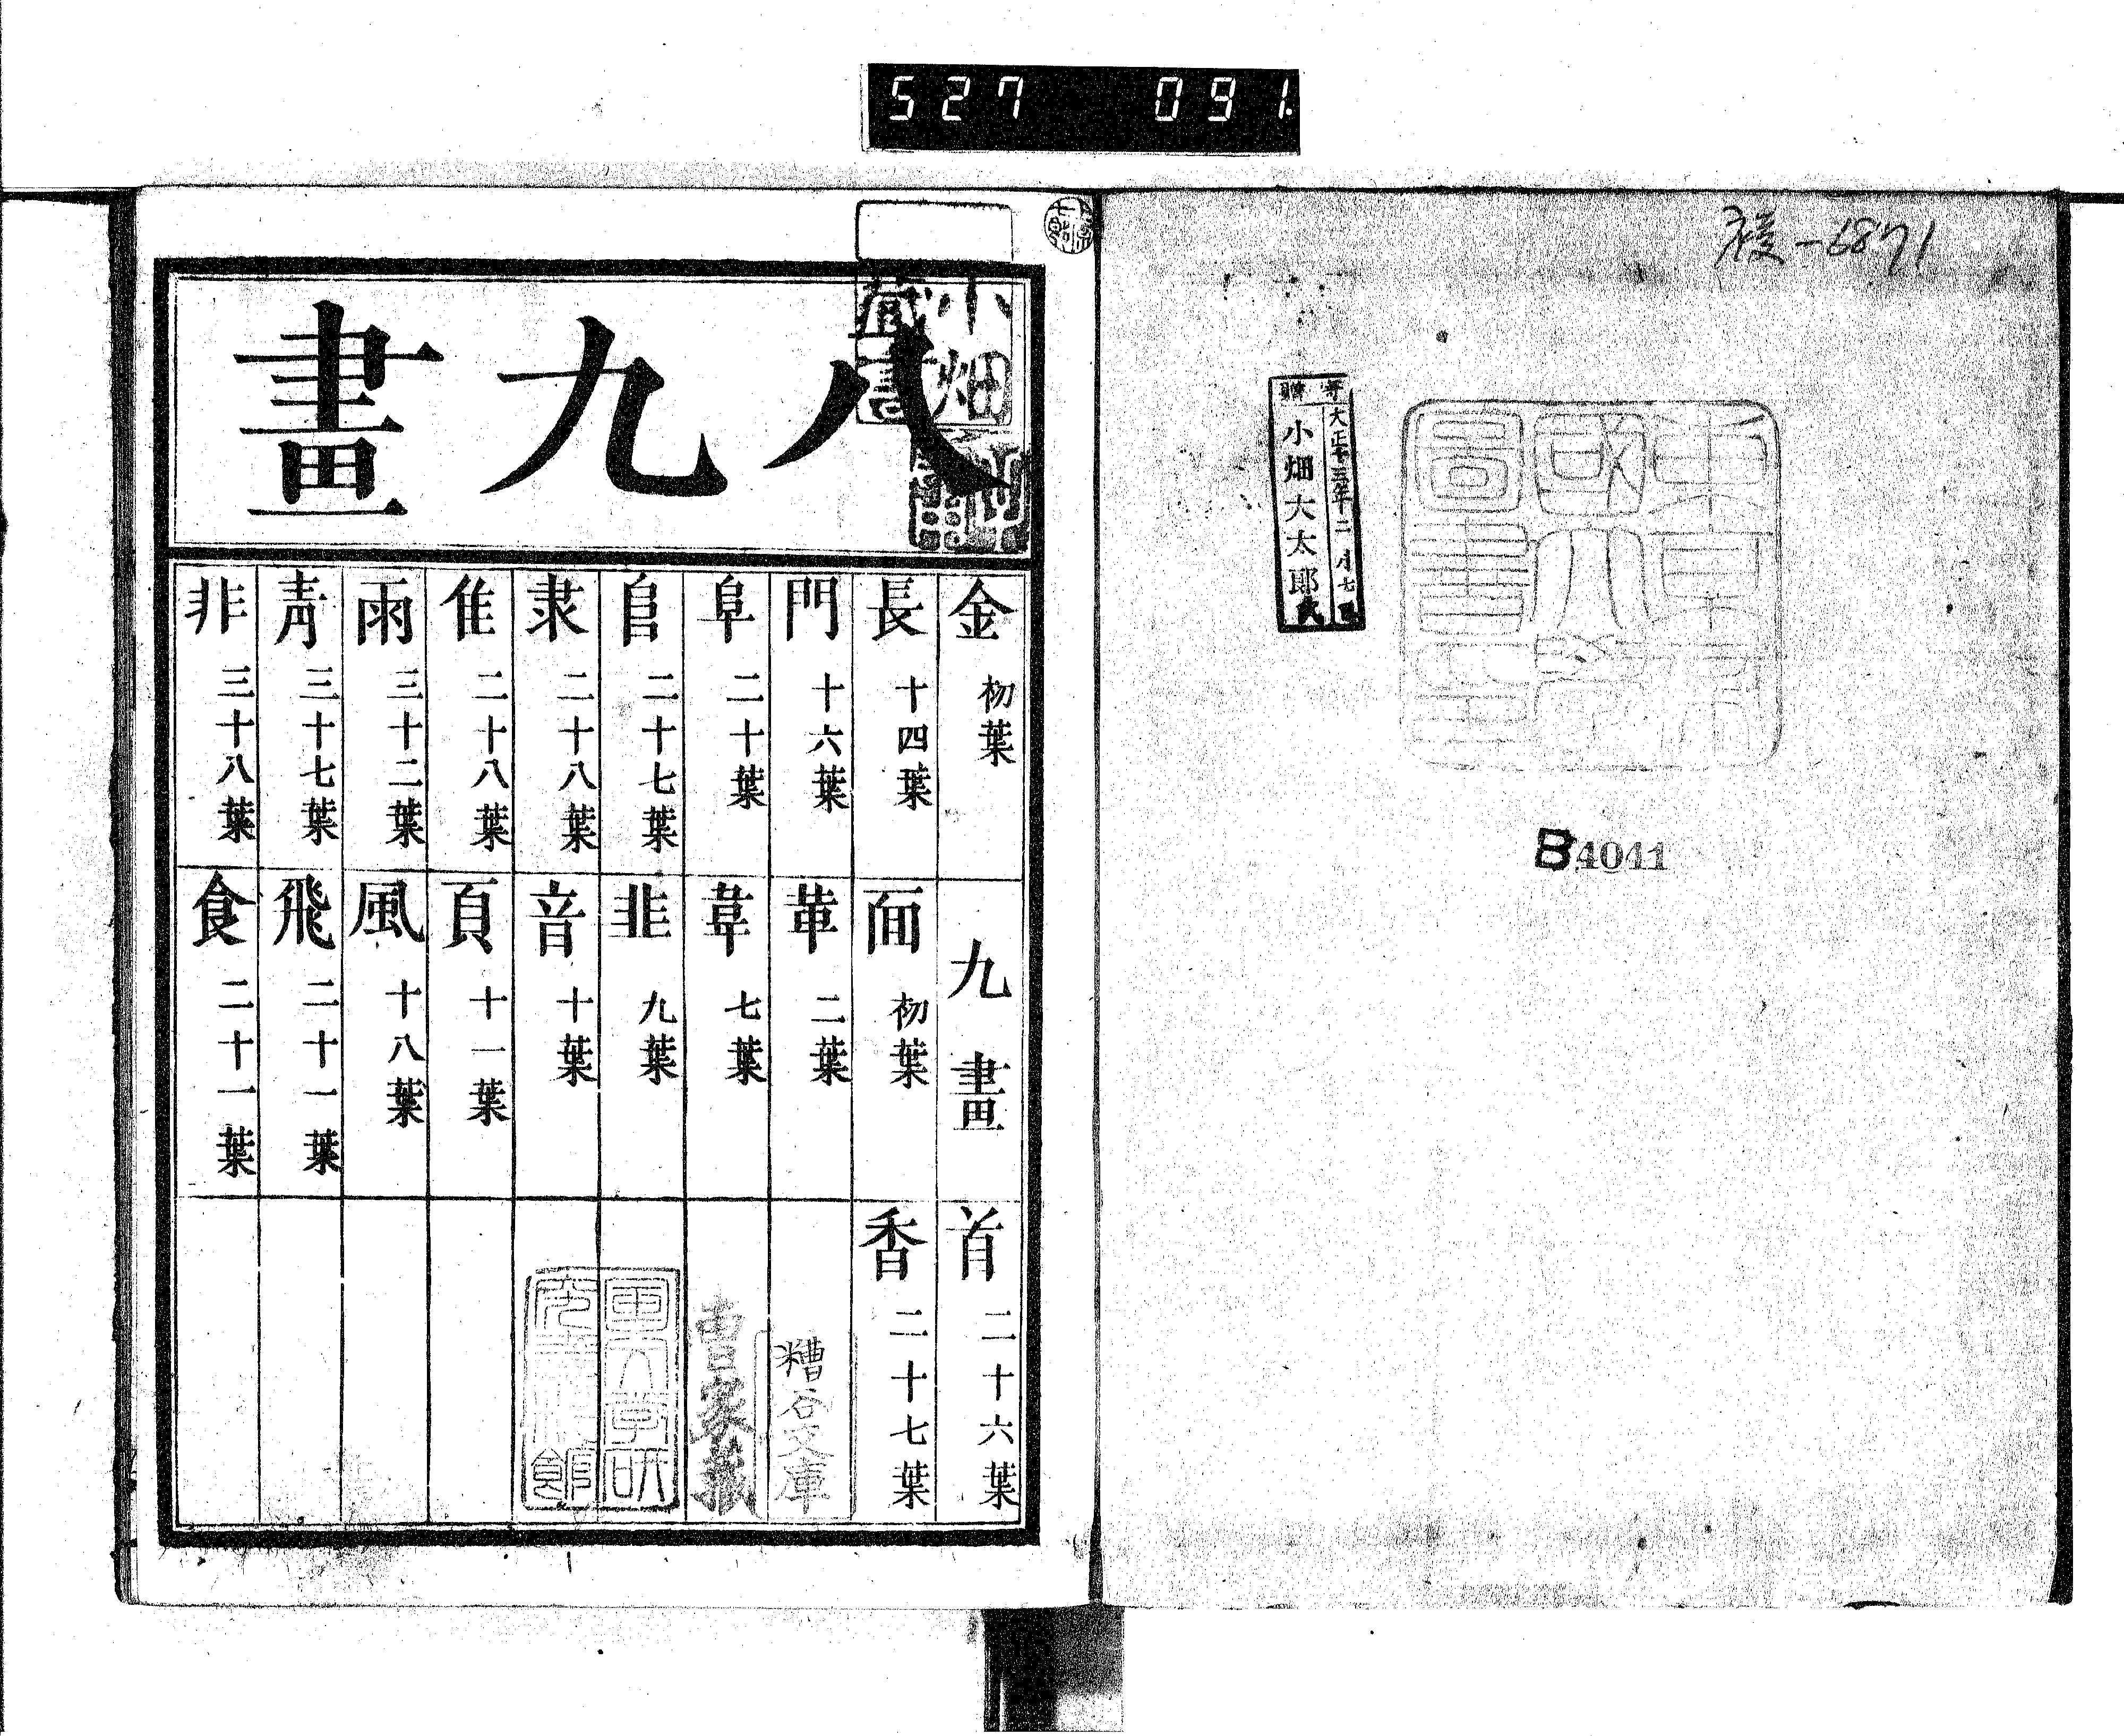 527 091.
-6871
寄贈
大正十三年十二
小畑大太郎氏
東京帝國大學圖書
B4011
八九畫
小畑藏書
金 初葉
長 十四葉
門 十六葉
阜 二十葉
𨸏 二十七葉
隶 二十八葉
隹 二十八葉
雨 三十二葉
靑 三十七葉
非 三十八葉
九畫
面 初葉
革 二葉
韋 七葉
韭 九葉
音 十葉
頁 十一葉
風 十八葉
飛 二十一葉
食 二十一葉
首 二十六葉
香 二十七葉
糟谷文庫
曹家藏